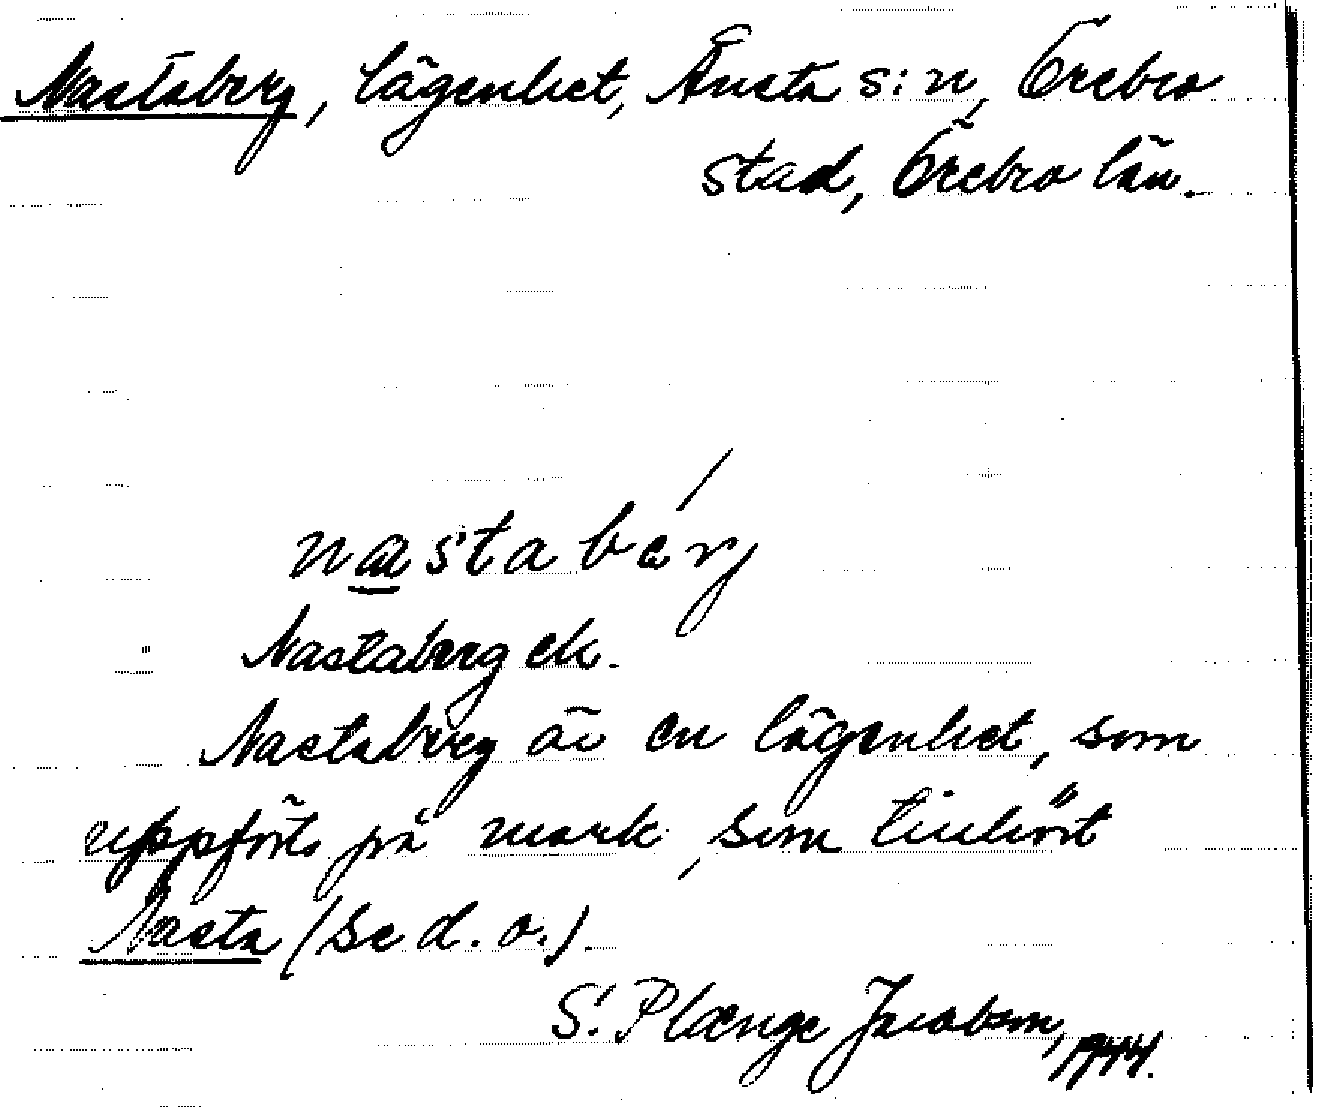 Nastaberg, lägenhet, Ånsta s:n, Örebro
stad, Örebro län.
nastabærj
Nastaberg ek.
Nastaberg är en lägenhet, som
uppförts på mark, som tillhört
Nasta (se d. o.).
S. Plænge Jacobson, 1944.